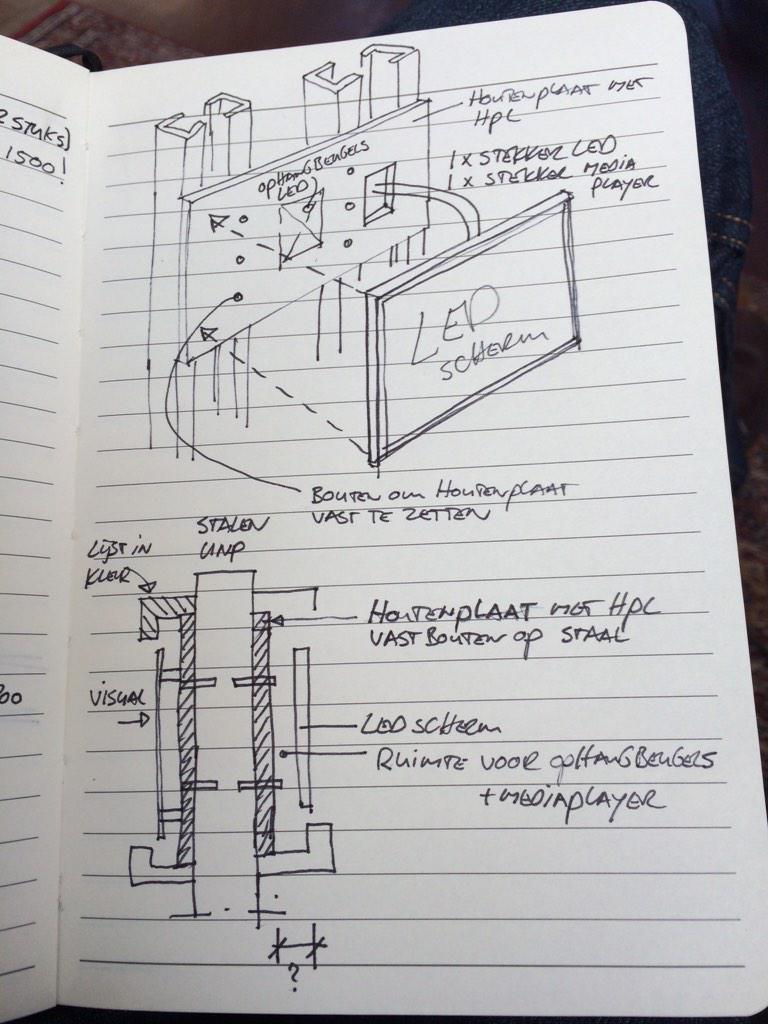 2 STUKS)
1500!
HOUTENPLAAT MET
HPL
OPHANGBEUGELS
LED
1 X STEKKER LED
1 X STEKKER MEDIA
PLAYER
LED
SCHERM
BOUTEN OM HOUTENPLAAT
VAST TE ZETTEN
STALEN
UNP
LIJST IN
KLEUR
HOUTENPLAAT MET HPL
VAST BOUTEN OP STAAL
VISUAL
LED SCHERM
RUIMTE VOOR OPHANGBEUGELS
+ MEDIAPLAYER
00
?